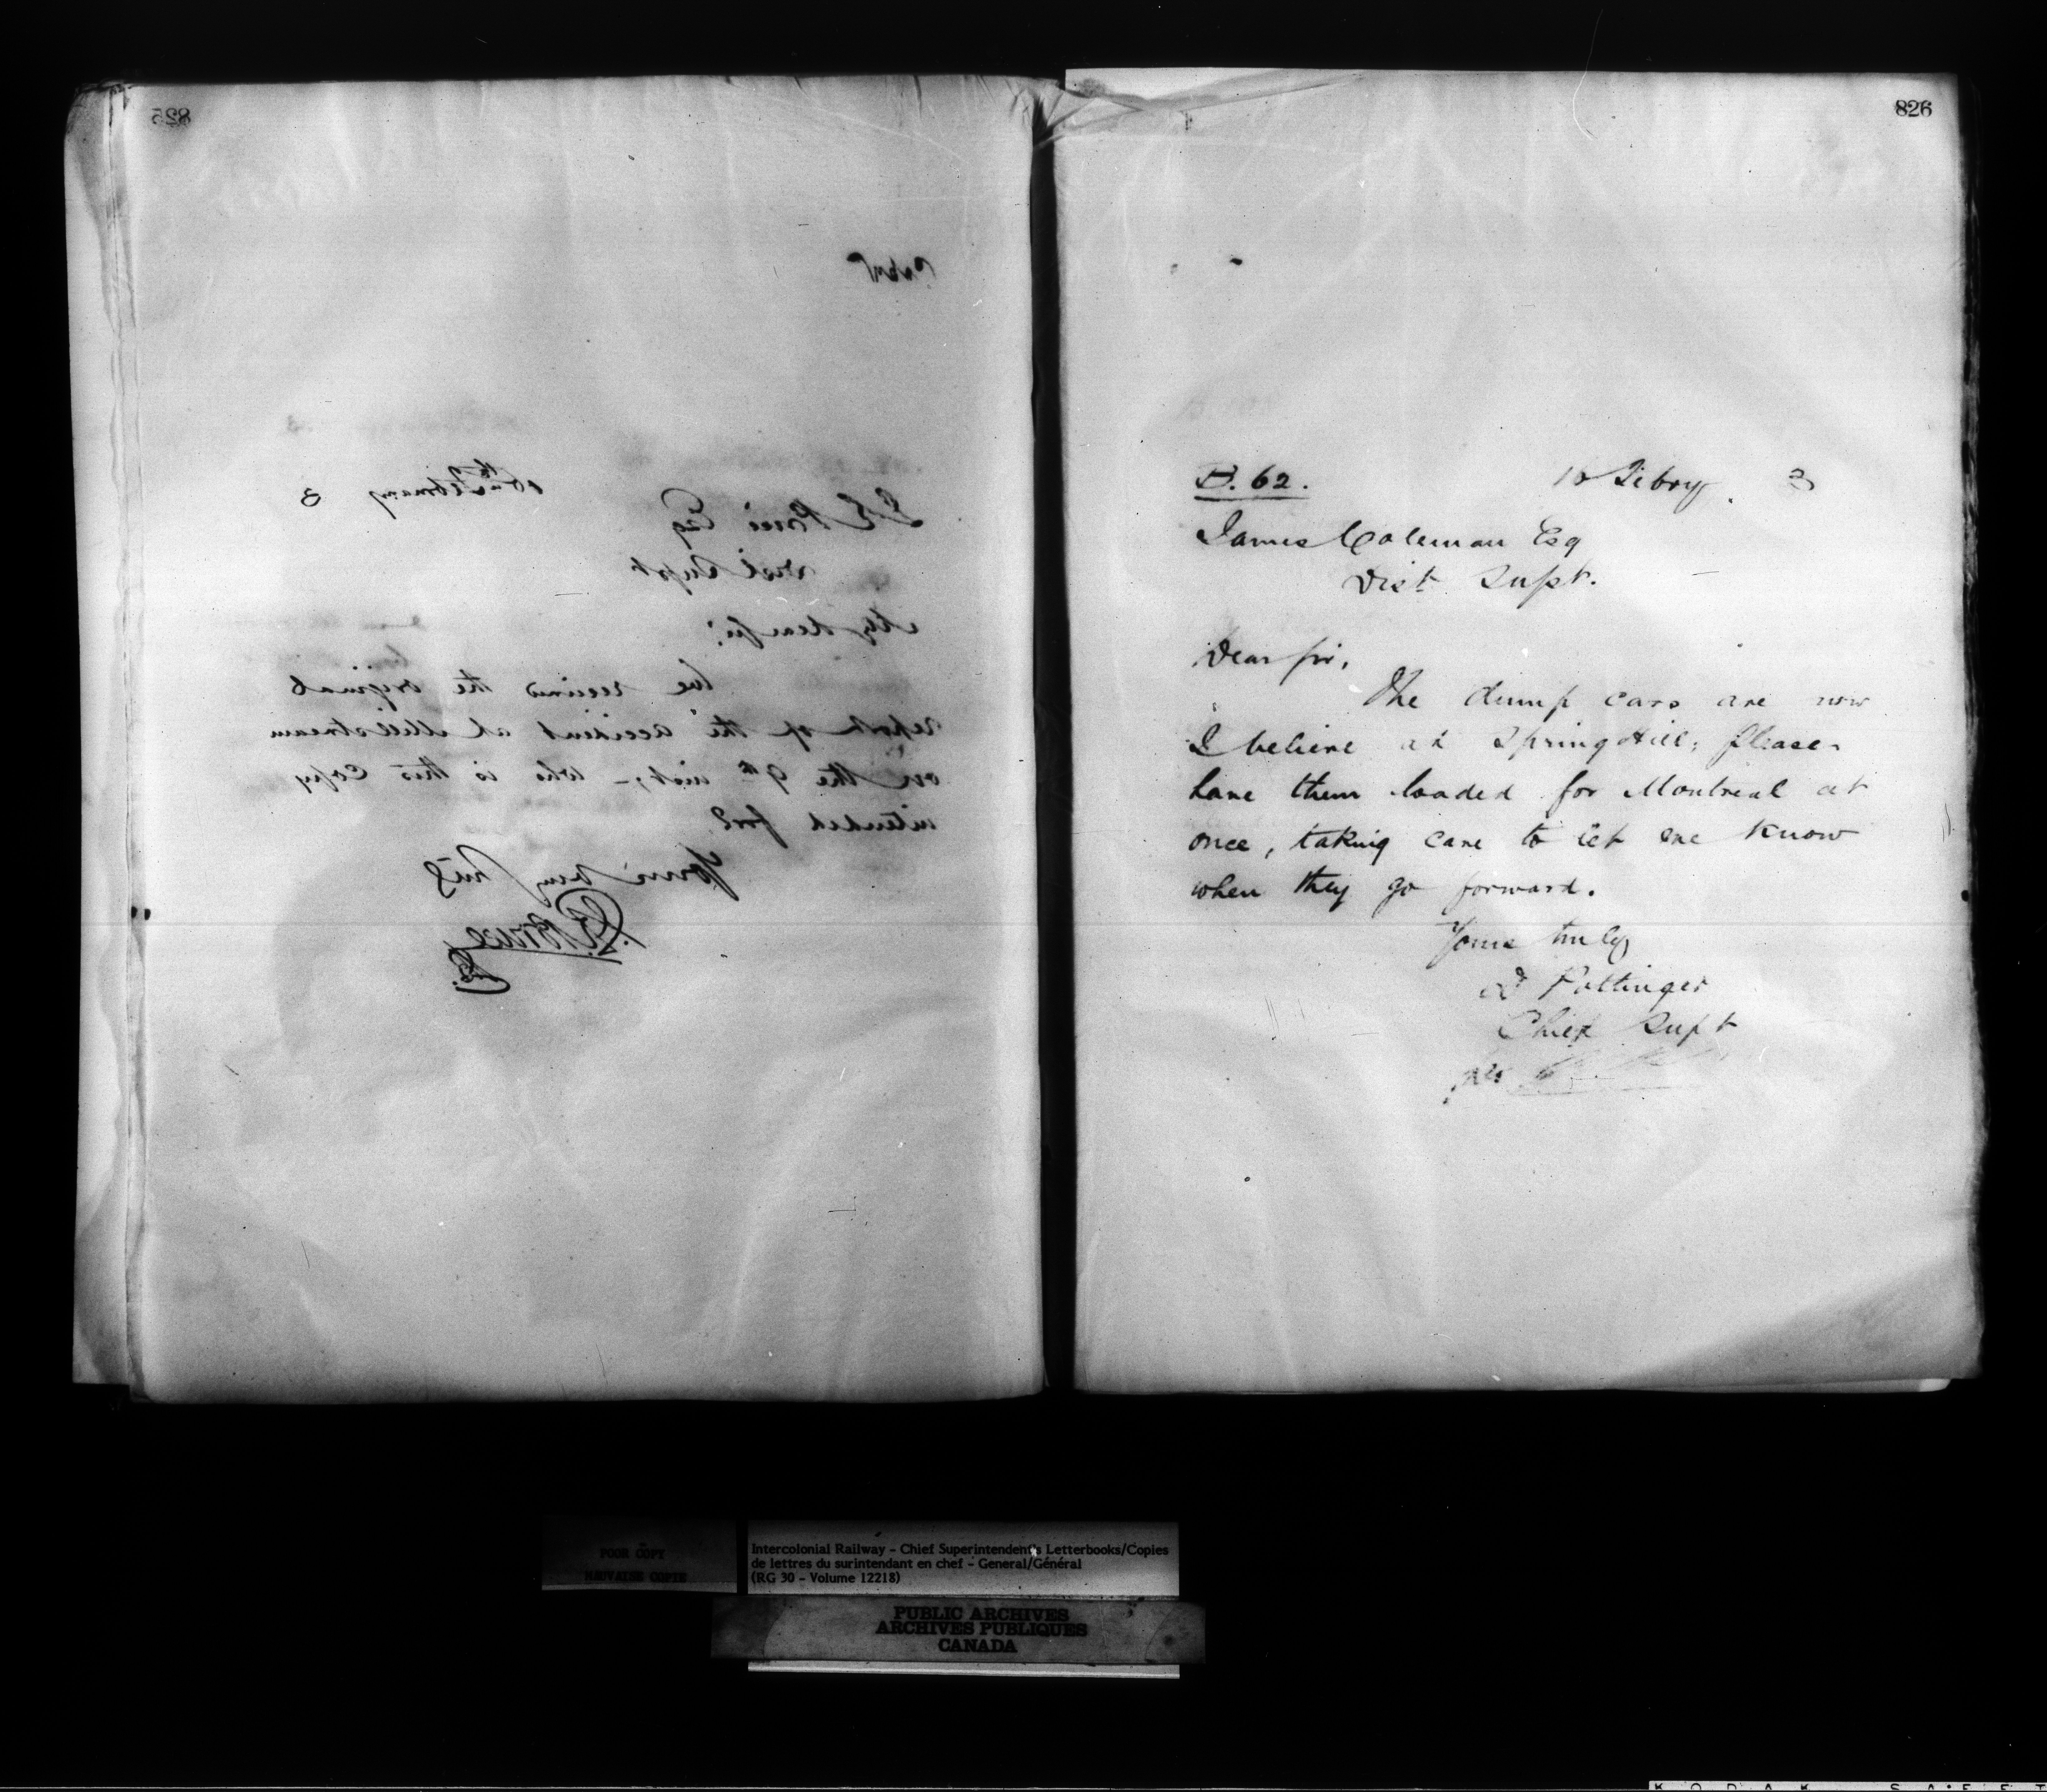 825
16th February 3
Esq
Dist Supt
My dear Sir:
We received the original
report of the accident at Millstream
on the 9th inst; - who is this copy
intended for?
Yours very truly
826
B. 62.
10 Febry. 3
James Coleman Esq
Dist. Supt.
Dear Sir,
The dump cars are now
I believe at Spring Hill, please
have them loaded for Montreal at
once, taking care to let me know
when they go forward.
Yours truly
D Pottinger
Chief Supt
per
POOR COPY
MAUVAISE COPIE
Intercolonial Railway - Chief Superintendent's Letterbooks/Copies
de lettres du surintendant en chef - General/Général
(RG 30 - Volume 12218)
PUBLIC ARCHIVES
ARCHIVES PUBLIQUES
CANADA